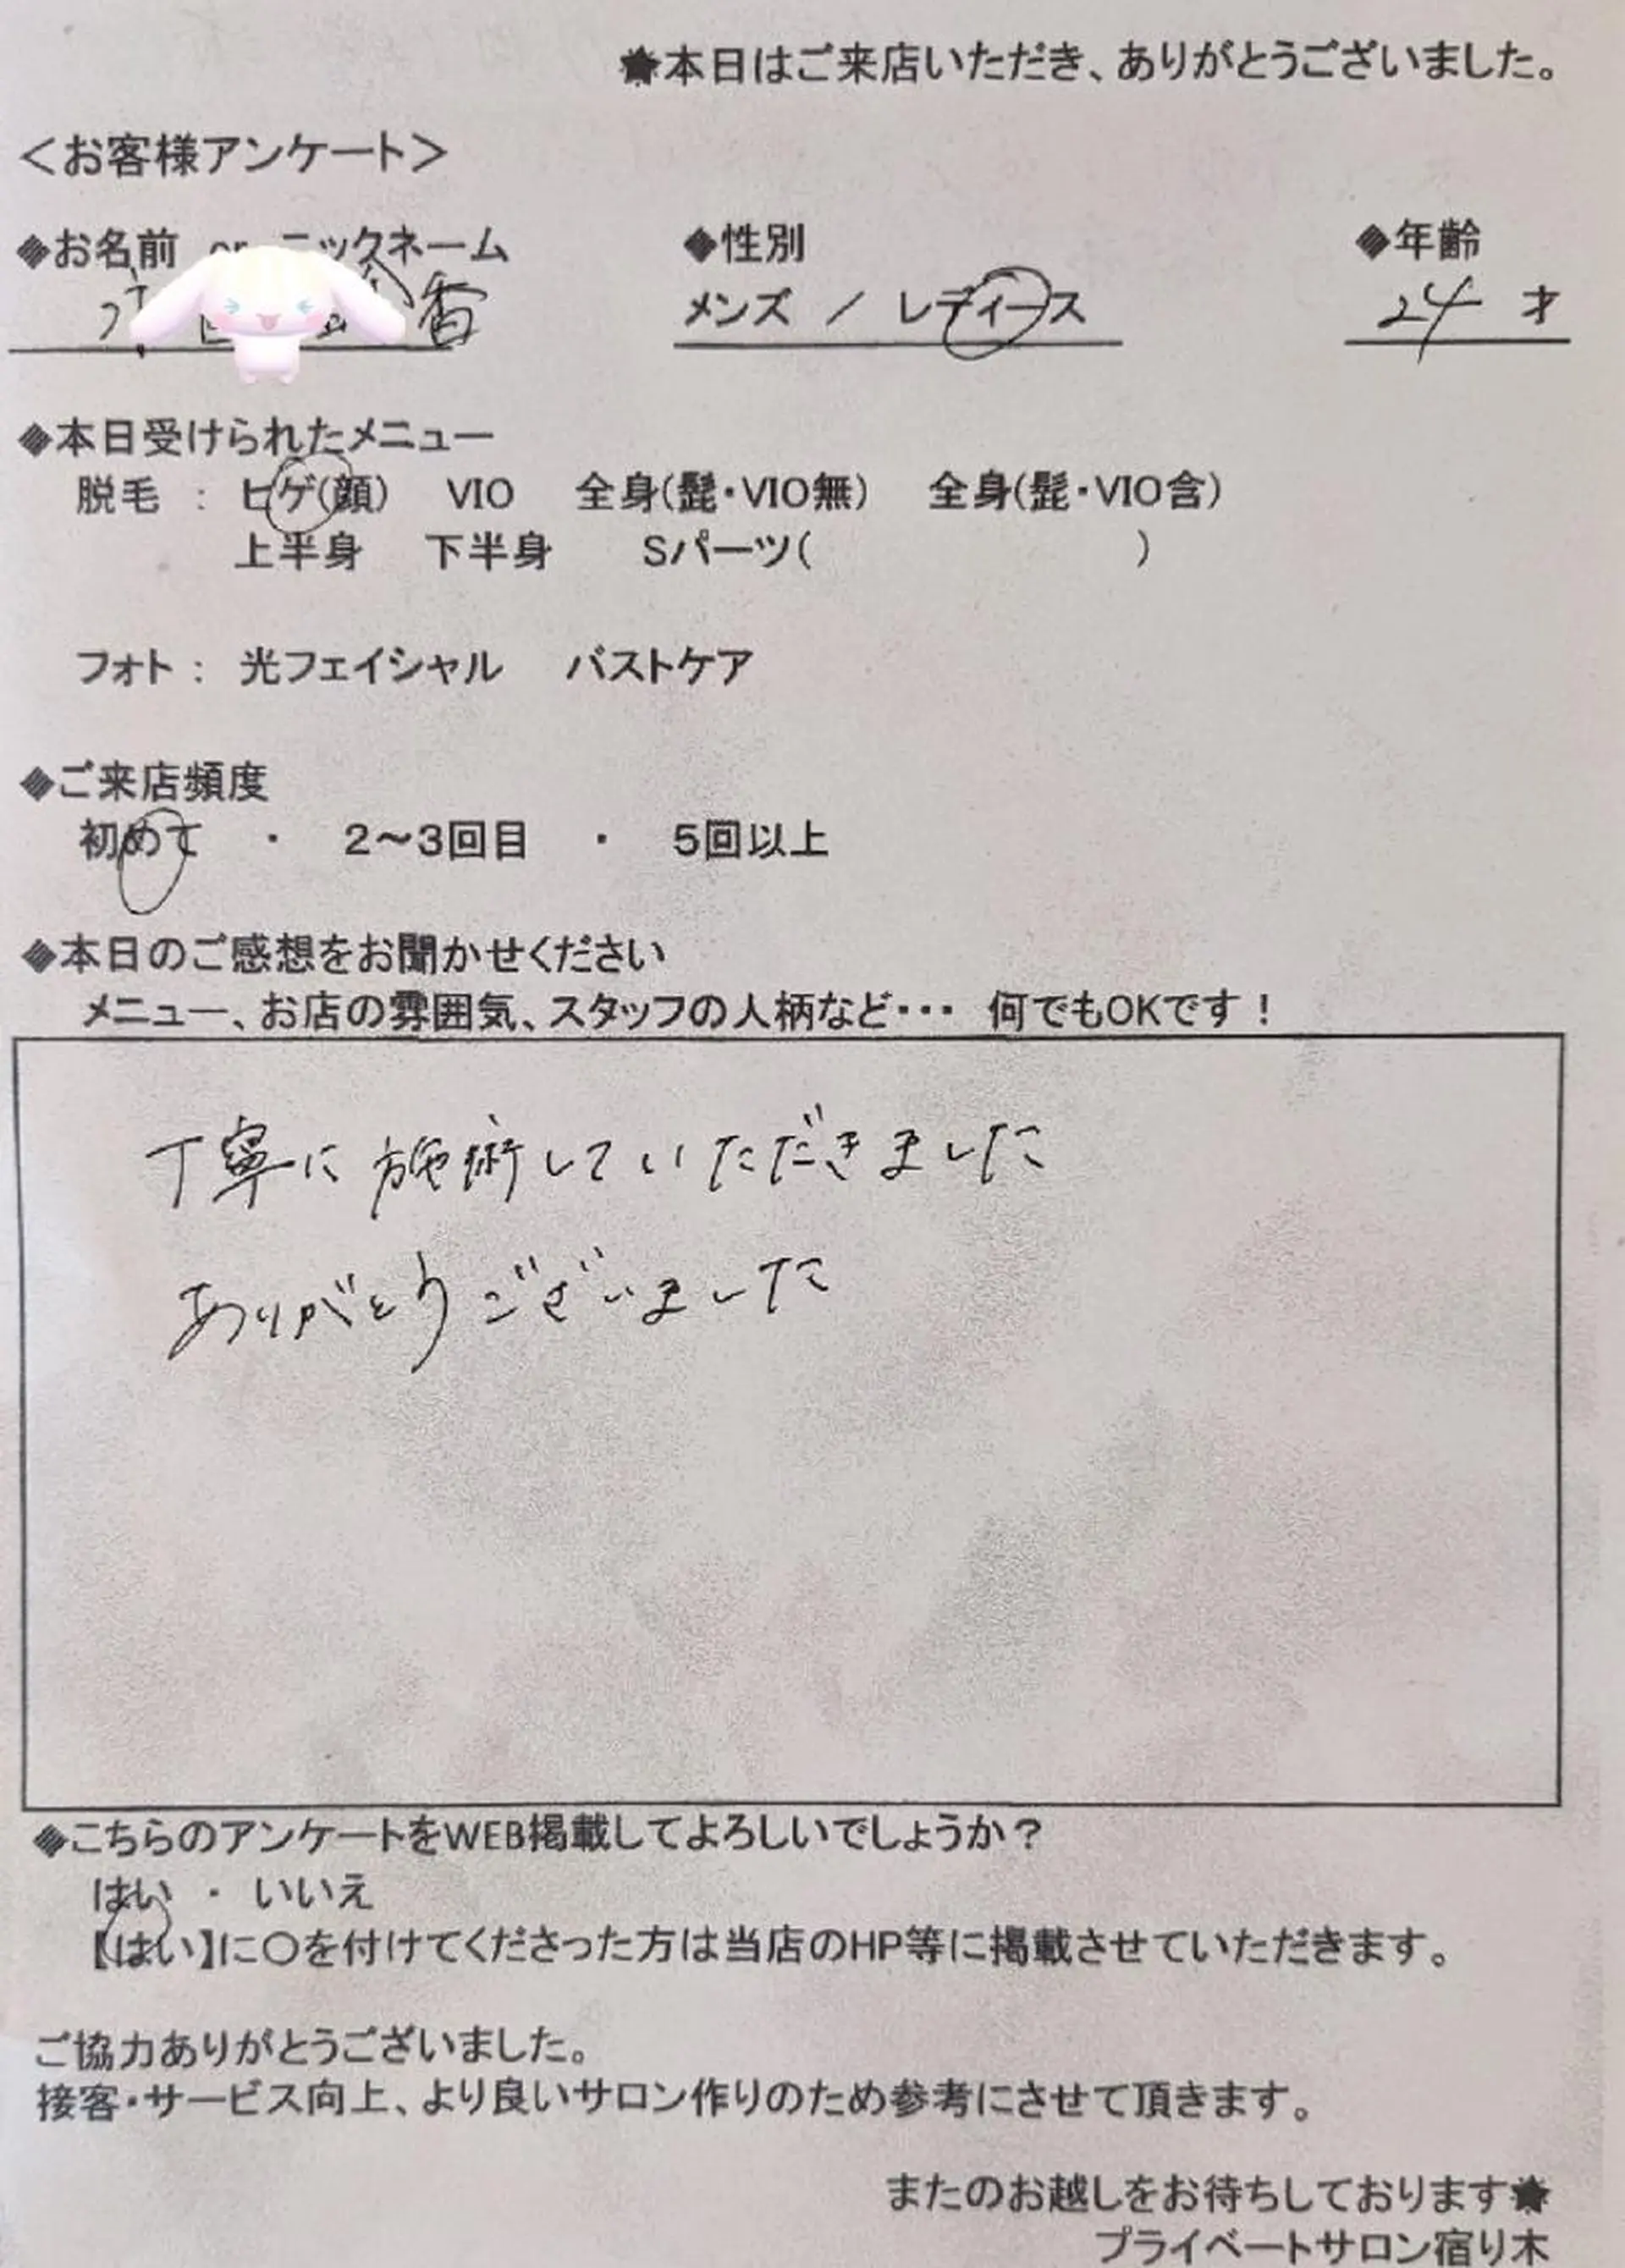 ★本日はご来店いただき、ありがとうございました。
＜お客様アンケート＞
◆お名前 or ニックネーム ◆性別 ◆年齢
香 メンズ ／ レディース 24 才
◆本日受けられたメニュー
脱毛 ： ヒゲ(顔) VIO 全身(髭・VIO無) 全身(髭・VIO含)
上半身 下半身 Sパーツ( )
フォト： 光フェイシャル バストケア
◆ご来店頻度
初めて ・ 2～3回目 ・ 5回以上
◆本日のご感想をお聞かせください
メニュー、お店の雰囲気、スタッフの人柄など・・・ 何でもOKです！
丁寧に施術していただきました
ありがとうございました
◆こちらのアンケートをWEB掲載してよろしいでしょうか？
はい ・ いいえ
【はい】に○を付けてくださった方は当店のHP等に掲載させていただきます。
ご協力ありがとうございました。
接客・サービス向上、より良いサロン作りのため参考にさせて頂きます。
またのお越しをお待ちしております★
プライベートサロン宿り木